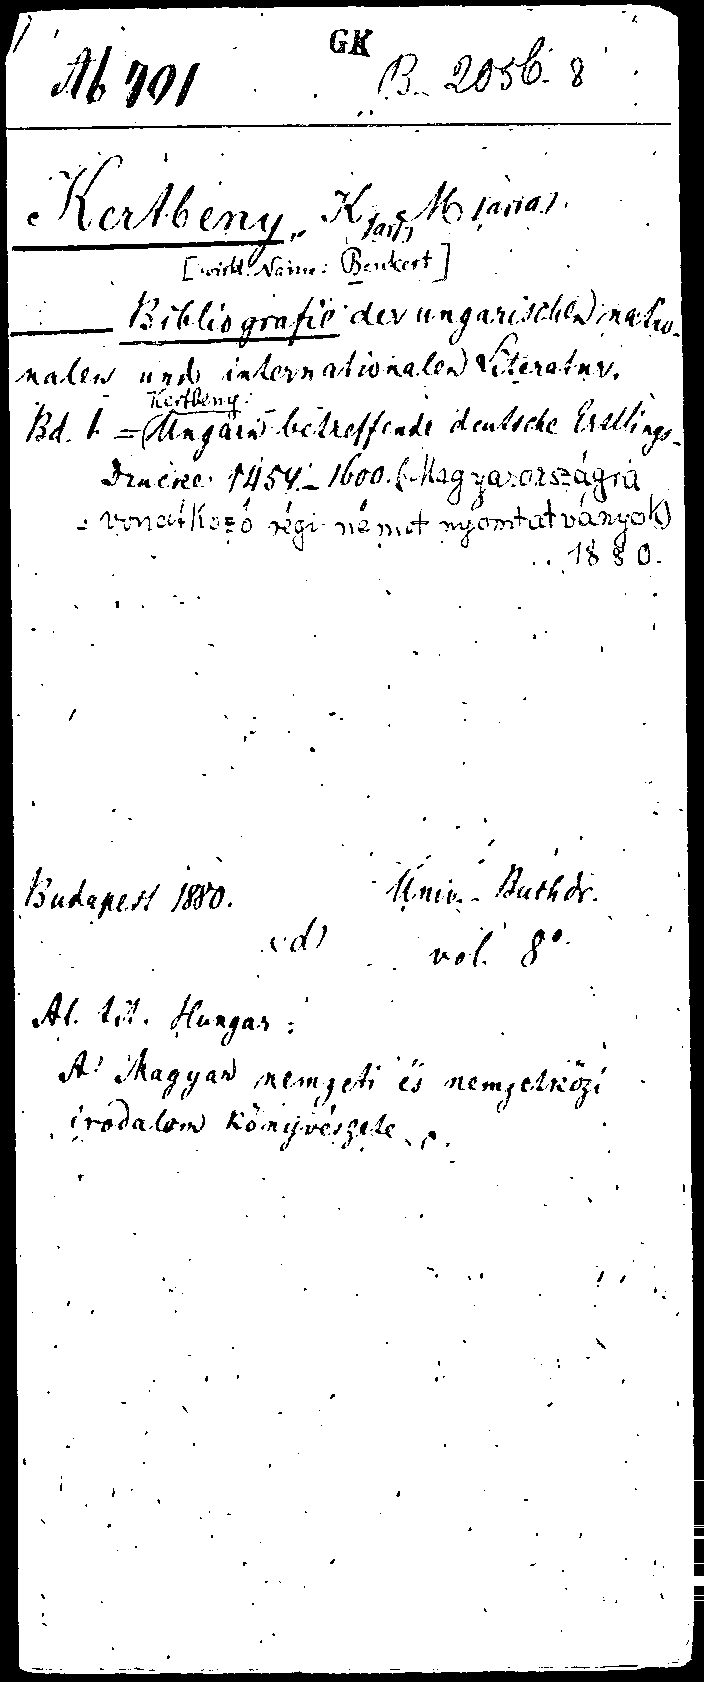 GK
Ab 701 B. 2056. 8
Kertbeny, K[arl] M[aria].
[wirkl. Name: Benkert]
Bibliografie der ungarischen natio-
nalen und internationalen Literatur.
Kertbeny:
Bd. 1 = (Ungarn betreffende deutsche Erstlings-
Drucke 1454–1600. (Magyarországra
vonatkozó régi német nyomtatványok)
1880.
Budapest 1880. Univ.-Buchdr.
vol. 8°.
At. tit. Hungar:
A' Magyar nemzeti és nemzetközi
irodalom könyvészete.